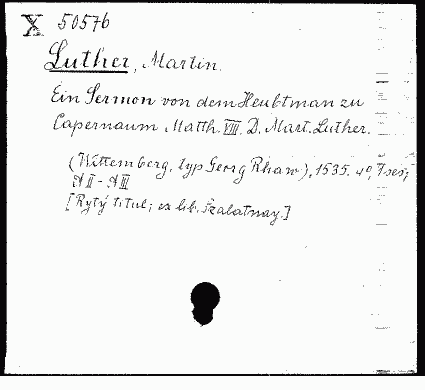 X 50576
Luther, Martin.
Ein Sermon von dem Heubtman zu
Capernaum Matth. VIII. D. Mart. Luther.
(Wittemberg, typ Georg Rhaw), 1535. 4°, 7 ses;
A II - A III
[Rytý titul; ex lib. Szalatnay.]